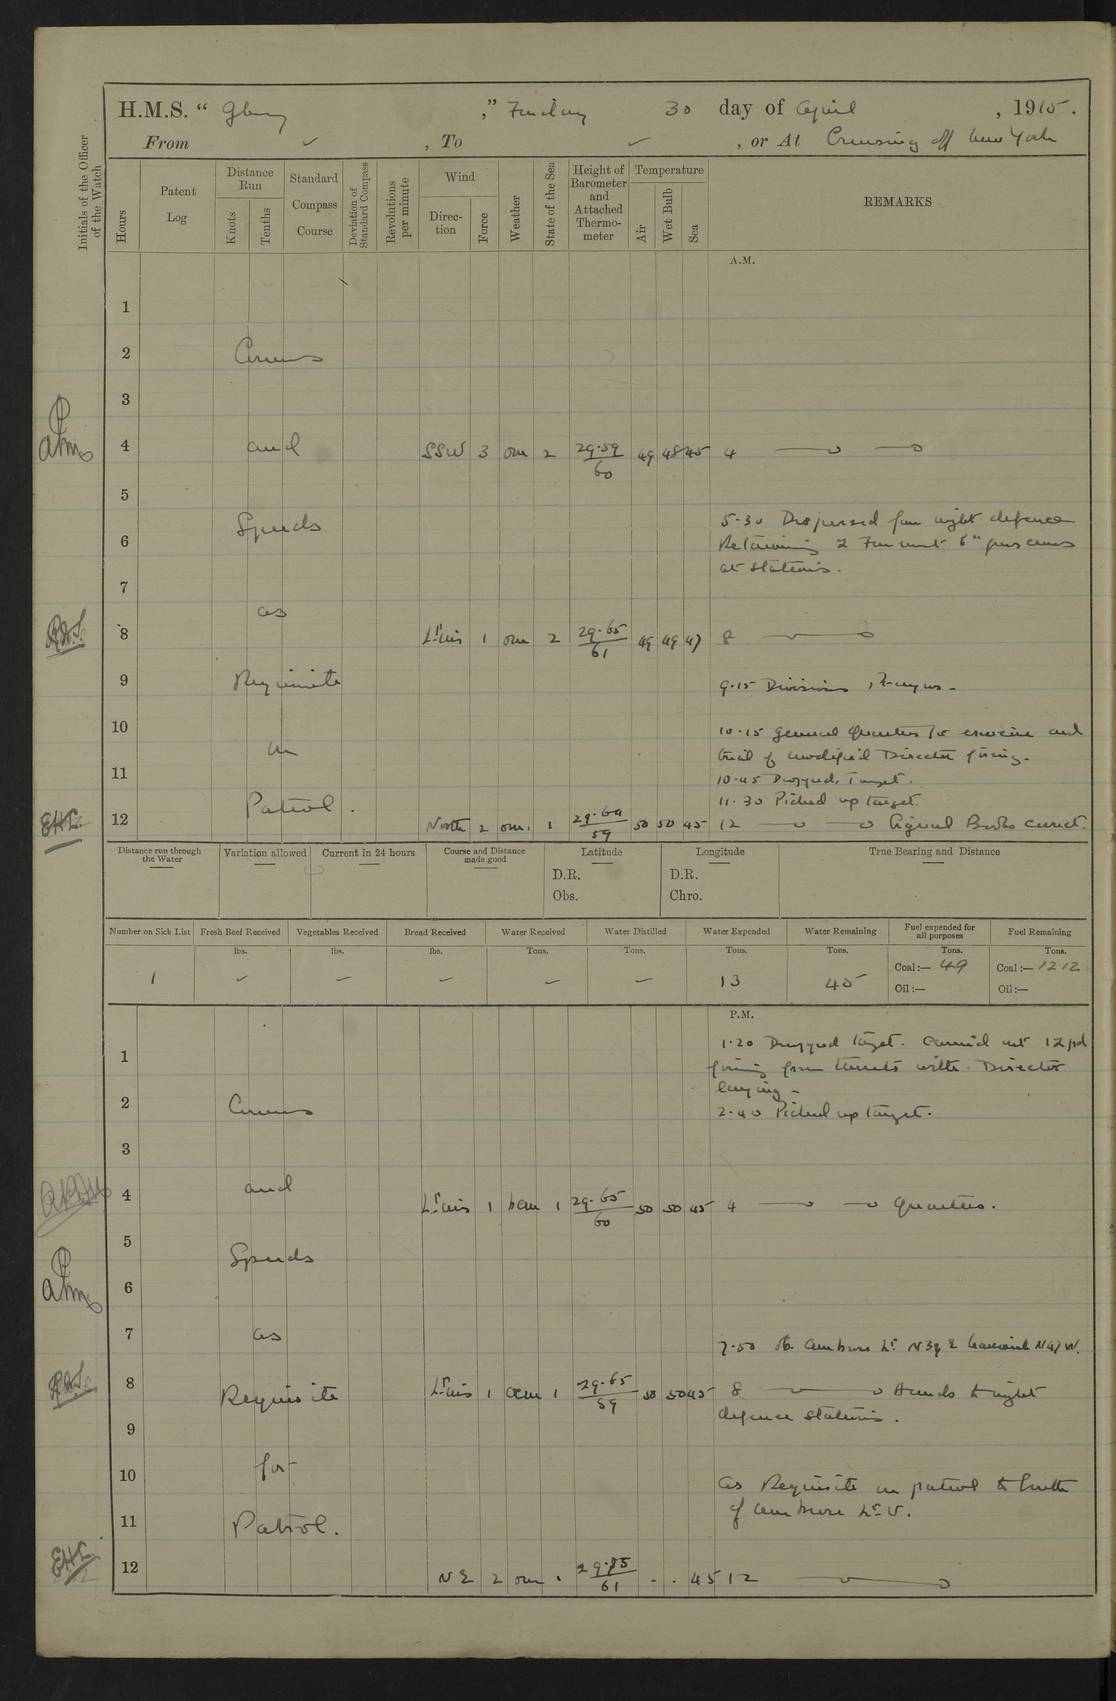 H.M.S. " Glory ," Friday 30 day of April , 1915.
From ✓ , To ✓ , or At Cruising off New York
Initials of the Officer of the Watch
Hours
Patent Log
Distance Run
Knots
Tenths
Standard Compass Course
Deviation of Standard Compass
Revolutions per minute
Wind
Direction
Force
Weather
State of the Sea
Height of Barometer and Attached Thermometer
Temperature
Air
Wet Bulb
Sea
REMARKS
A.M.
1
2 Courses
3
4 and SSW 3 om 2 29.59/60 49 48 45 4
5
Speeds
5.30 Dispersed from night defence
6 Retaining 2 Foremost 6" guns crews
at Stations.
7
as
8 Lt airs 1 om 2 29.65/61 49 49 47 8
9 Requisite 9.15 Divisions, Prayers.
10 10.15 General Quarters for exercise and
on trial of modified Director firing.
11 10.45 Dropped Target.
Patrol. 11.30 Picked up target.
12 North 2 om. 1 29.64/59 50 50 45 12 Signal Books correct.
Distance run through the Water
Variation allowed
Current in 24 hours
Course and Distance made good
Latitude
D.R.
Obs.
Longitude
D.R.
Chro.
True Bearing and Distance
Number on Sick List Fresh Beef Received Vegetables Received Bread Received Water Received Water Distilled Water Expended Water Remaining Fuel expended for all purposes Fuel Remaining
lbs. lbs. lbs. Tons. Tons. Tons. Tons. Tons. Tons.
1 ✓ ✓ ✓ ✓ ✓ 13 45 Coal:— 49 Coal:— 1212
Oil:— Oil:—
P.M.
1.20 Dropped target. Carried out 12 pd
1 firing from turrets with Director
laying.
2 Courses 2.40 Picked up target.
3
4 and Lt airs 1 bcm 1 29.65/60 50 50 45 4 Quarters.
5
Speeds
6
7 as
7.50 St. Ambrose Lt N 39 E
8 Requisite Lt airs 1 1 29.65/59 50 50 45 8 Hands to night
defence stations.
9
10 for As Requisite on patrol to
of Ambrose Lt V.
11 Patrol.
12 NE 2 om 61 45 12
EHL